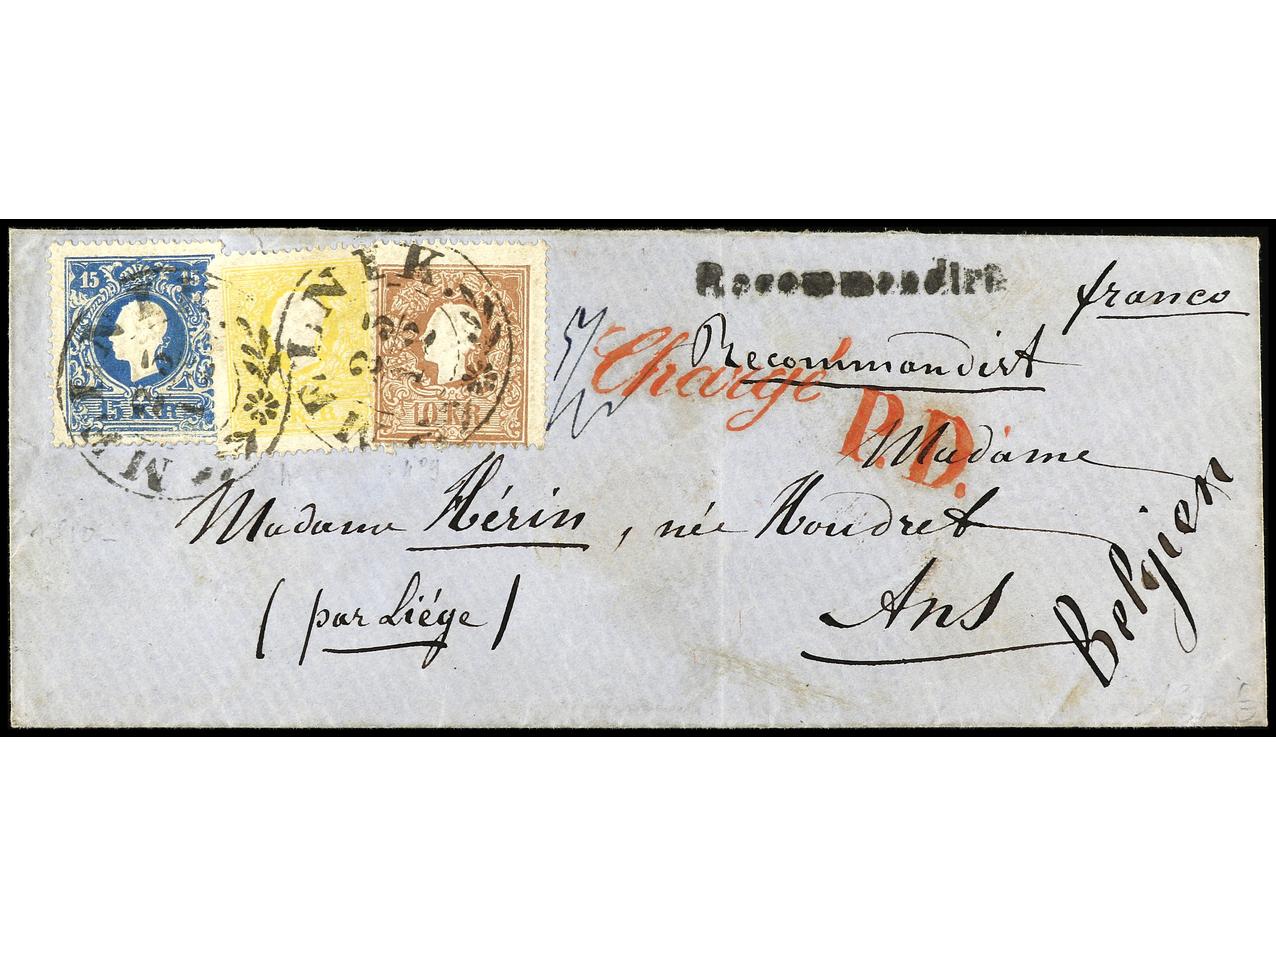 15 15
15 KR
KR
10 KR
MELNIK.
Recommandirt
franco
Recommandirt
Chargé
P.D.
Madame
Madame Hérin, née Houdret
Ans
(par Liége)
Belgien